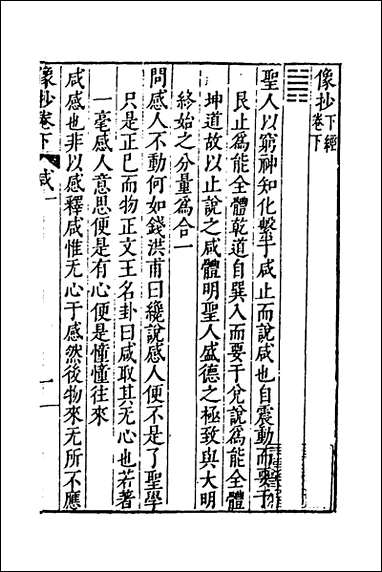 像抄下經
卷下
聖人以窮神知化繫乎咸止而說咸也自震動而要于
艮止為能全體乾道自巽入而要于兌說為能全體
坤道故以止說之咸體明聖人盛德之極致與大明
終始之分量為合一
問感人不動何如錢洪甫曰纔說感人便不是了聖學
只是正已而物正文王名卦曰咸取其无心也若著
一毫感人意思便是有心便是憧憧往來
咸感也非以感釋咸惟无心于感然後物來无所不應
像抄卷下
咸
一